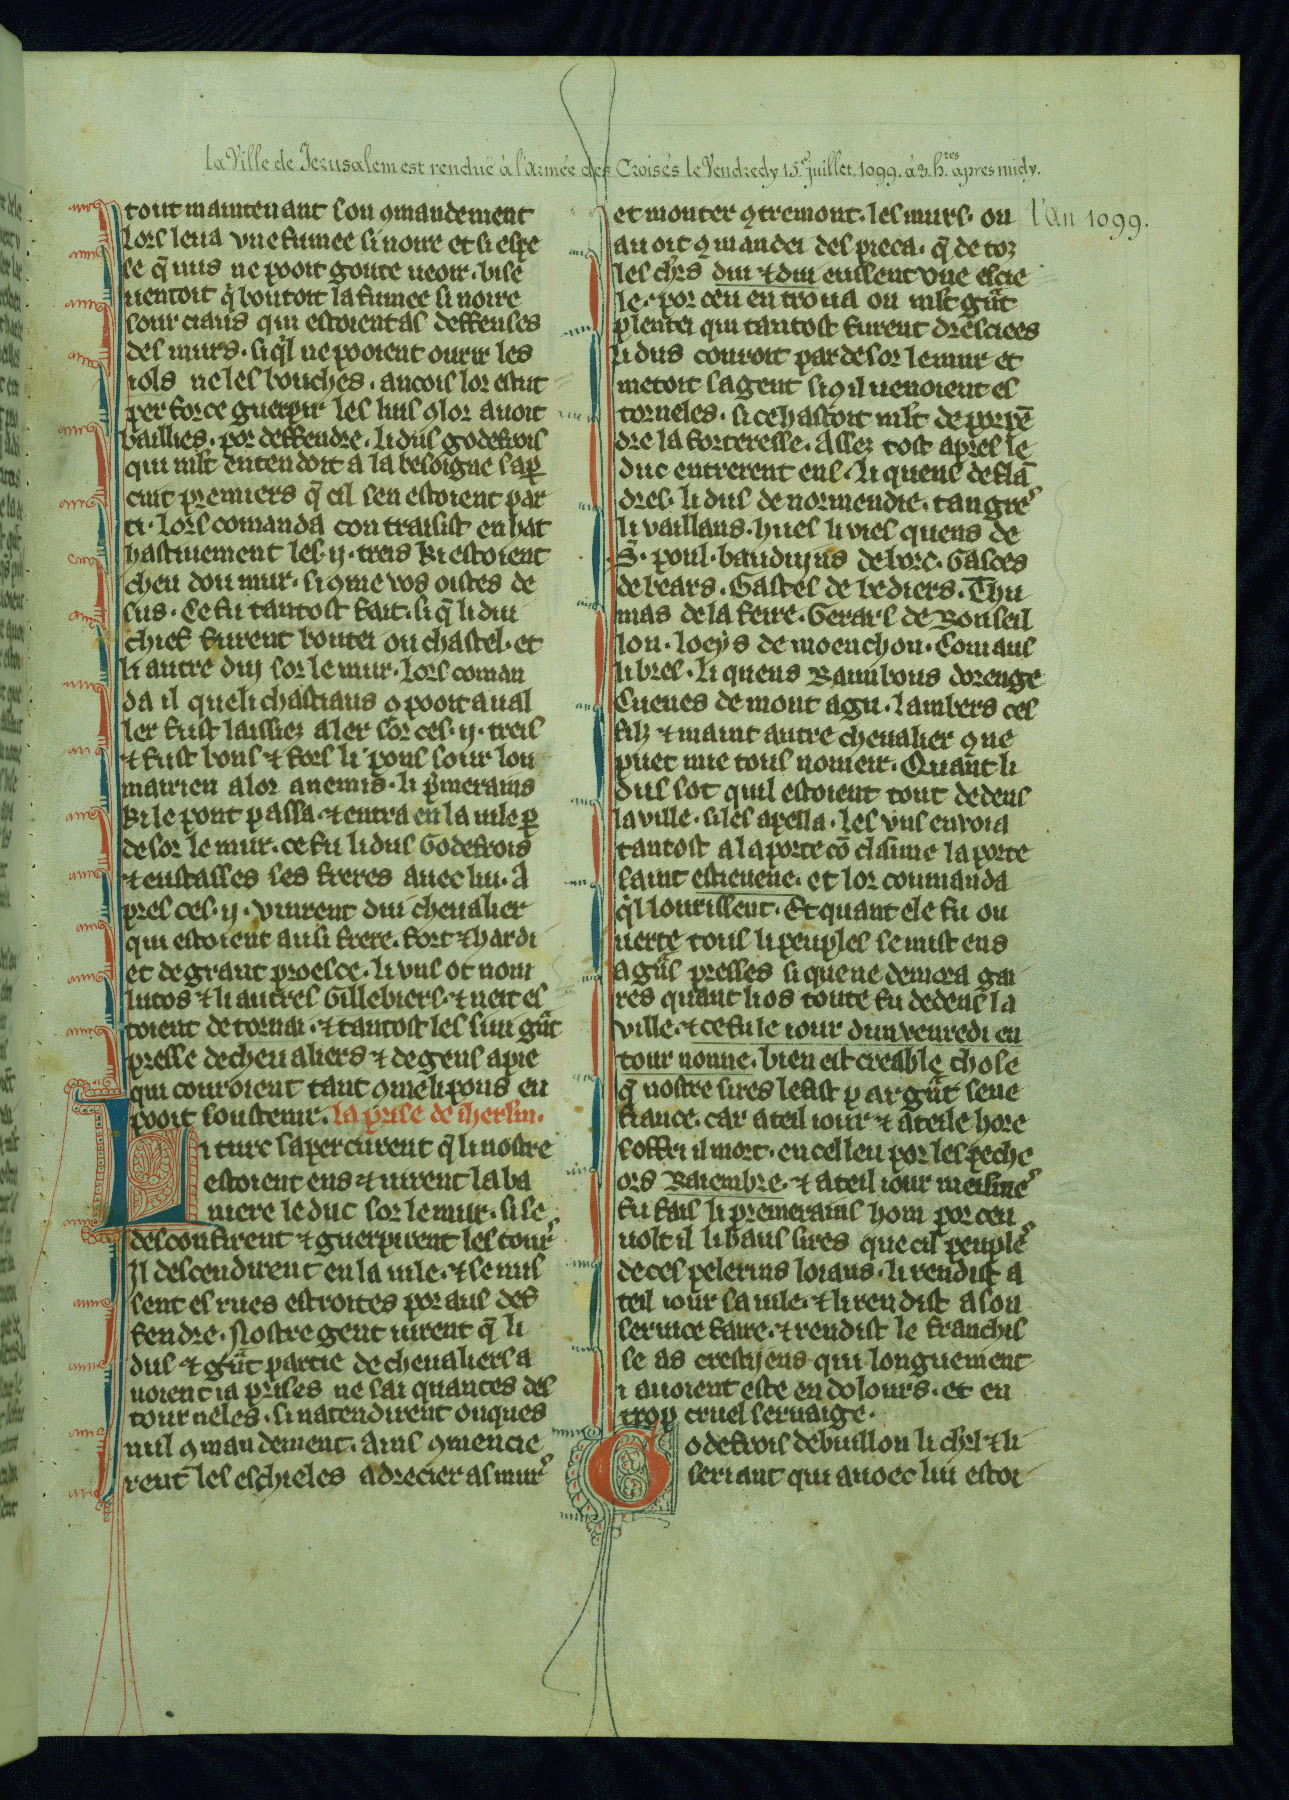 la Ville de Jerusalem est renduë à l'armée des Croisés le Vendredy 15.e juillet. 1099. à 3. h.res apres midy.
l'an 1099.
tout maintenant son ɔmandement
lors leua vne fumee si noire et si espe
se q̃ nus ne pooit goute ueoir. bise
uentoit q̃ boutoit la fumee si noire
sour ciaus qui estoient as deffenses
des murs. si q̃l ne pooient ourir les
iols ne les bouches. ancois lor estut
per force guerpir les luis ɔlor auoit
baillies. por deffendre. li dus godefrois
qui mlt̃ entendoit a la besoigne saꝑ
cuit premiers q̃ cil sen estoient par
ti. lors comanda con traisist en hat
hastiuement les .ij. treis ki estoient
cheu dou mur. si ɔme vos oistes de
sus. Ce fu tantost fait. si q̃ li dui
chief furent boutei ou chastel. et
li autre dui sor le mur. lors coman
da il que li chastiaus ɔ pooit aual
ler fust laissiez aler sor ces .ij. treis
⁊ fust bons ⁊ fors li pons sour lou
mairien a lor anemis. li p̃merains
ki le pont passa. ⁊ entra en la uile ꝑ
desor le mur. ce fu li dus Godefrois
⁊ eustasses ses freres auec lui. A
pres ces .ij. vinrent dui cheualier
qui estoient ausi frere. fort ⁊ hardi
et de grant proesce. li vns ot nom
lutos ⁊ li autres Gillebiers. ⁊ nei es
toient de tornai. ⁊ tantost les siui gñt
presse de cheualiers ⁊ de gens a pie
qui couroient tant ɔme li pons en
pooit soustenir. la prise de iherlm.
Li turc sapercurent q̃ li nostre
estoient ens ⁊ uirent la ba
niere le duc sor le mur. si se
desconfirent ⁊ guerpirent les tours
Il descendirent en la uile. ⁊ se mis
sent es rues estroites por aus def
fendre. Nostre gent uirent q̃ li
dus ⁊ gñt partie de cheualiers a
uoient ia prises ne sai quantes des
tourneles. si natendirent onques
nuil ɔmandement. Ains ɔmencie
rent les eschieles a drecier as murs
et monter ɔtremont. les murs. on
auoit ɔmandei des pieca. q̃ de toz
les chr̃s dui ⁊ dui eussent vne escie
le. por ceu en troua on mlt̃ gñt
plentei qui tantost furent dresciees
li dus couroit par desor le mur et
metoit sa gent si ɔ il uenoient es
torneles. si ce hastoit mlt̃ de porpẽ
dre la forteresse. Assez tost apres le
duc entrerent ens. li quens de flã
dres. li dus de normendie. tangres
li vaillans. hues li viels quens de
S. poul. bauduyns de borc. Gasces
de bears. Gastes de bediers. Thu
mas de la feire. Gerars de Rouseil
lon. loeys de moenchon. Comans
li bres. li quens Raimbous dorenge
Cuenes de mont agu. lambers ces
filz ⁊ maint autre cheualier ɔ ne
puet mie tous nomeir. Quant li
dus sot quil estoient tout dedens
la ville. si les apella. les vns enuoia
tantost a la porte cõ claime la porte
saint estieuene. et lor coumanda
q̃l lourissent. Et quant ele fu ou
uerte tous li peuples se mist ens
a gñs presses si que ne demora gai
res quant li os toute fu dedens la
ville. ⁊ ce fu le iour dun venredi en
tour nonne. bien est creable chose
q̃ nostre sires le fist par gñt sene
fiance. car a teil iour ⁊ a teile hore
soffri il mort. en cel leu por les peche
ors Raiembre. ⁊ a teil iour meismes
fu fais li premerains hom por ceu
uolt il li haus sires que cil peuples
de ces pelerins loiaus. li rendist a
teil iour sa uile. ⁊ li rendist a son
seruice faire. ⁊ rendist le franchis
se as crestijens qui longuement
i auoient este en dolours. et en
trop cruel seruaige.
Godefrois de buillon li chrl̃ ⁊ li
seriant qui auoec lui estoi